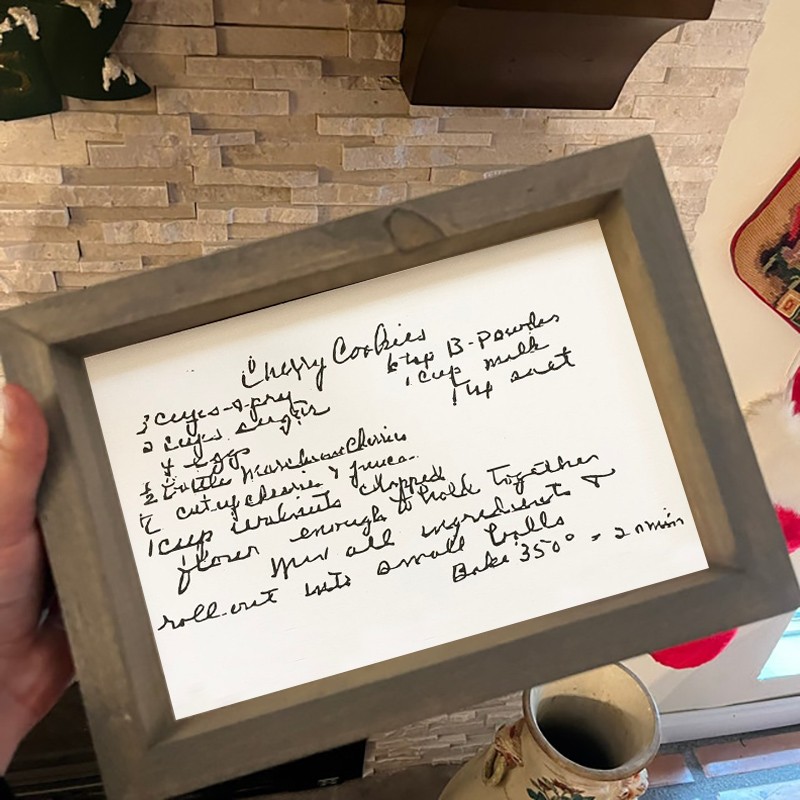 Cherry Cookies
3 cups Spry
2 cups sugar
4 eggs
1/2 bottle Maraschino Cherries
cut up cherries & juice
1 cup walnuts chopped
flour enough to hold together
Mix all ingredients &
roll out into small balls
Bake 350° - 20 min
6 tsp B-Powder
1 cup milk
1 tsp salt